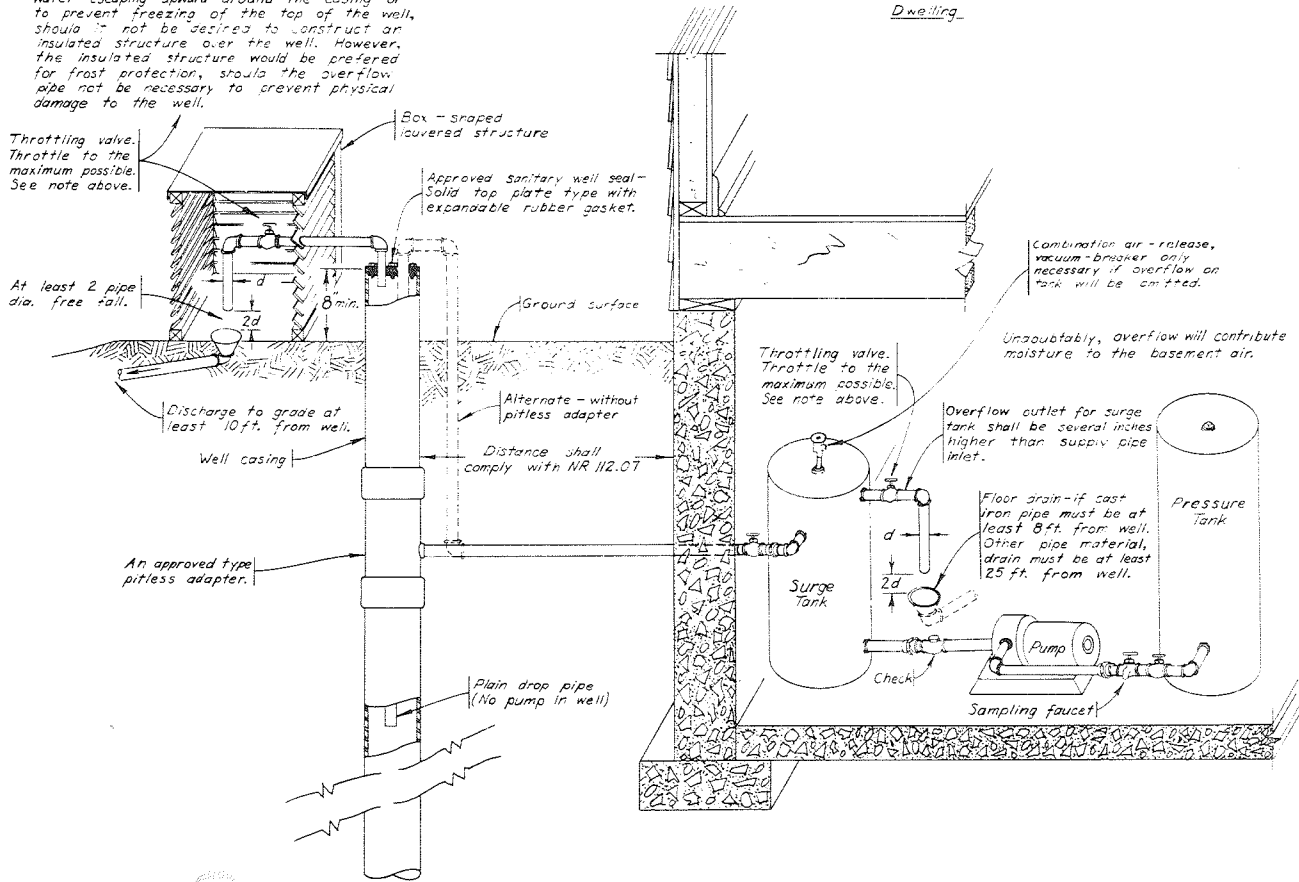 water escaping upward around the casing or
to prevent freezing of the top of the well,
should it not be desired to construct an
insulated structure over the well. However,
the insulated structure would be prefered
for frost protection, should the overflow
pipe not be necessary to prevent physical
damage to the well.
Dwelling
Throttling valve.
Throttle to the
maximum possible.
See note above.
Box-shaped
louvered structure
Approved sanitary well seal-
Solid top plate type with
expandable rubber gasket.
At least 2 pipe
dia. free fall.
d
2d
8" min.
Ground surface
Discharge to grade at
least 10 ft. from well.
Well casing
Alternate - without
pitless adapter
Distance shall
comply with NR 112.07
An approved type
pitless adapter.
Plain drop pipe
(No pump in well)
Combination air-release,
vacuum-breaker only
necessary if overflow on
tank will be omitted.
Undoubtably, overflow will contribute
moisture to the basement air.
Throttling valve.
Throttle to the
maximum possible.
See note above.
Overflow outlet for surge
tank shall be several inches
higher than supply pipe
inlet.
Floor drain-if cast
iron pipe must be at
least 8 ft. from well.
Other pipe material,
drain must be at least
25 ft. from well.
d
2d
Surge
Tank
Pressure
Tank
Pump
Check
Sampling faucet